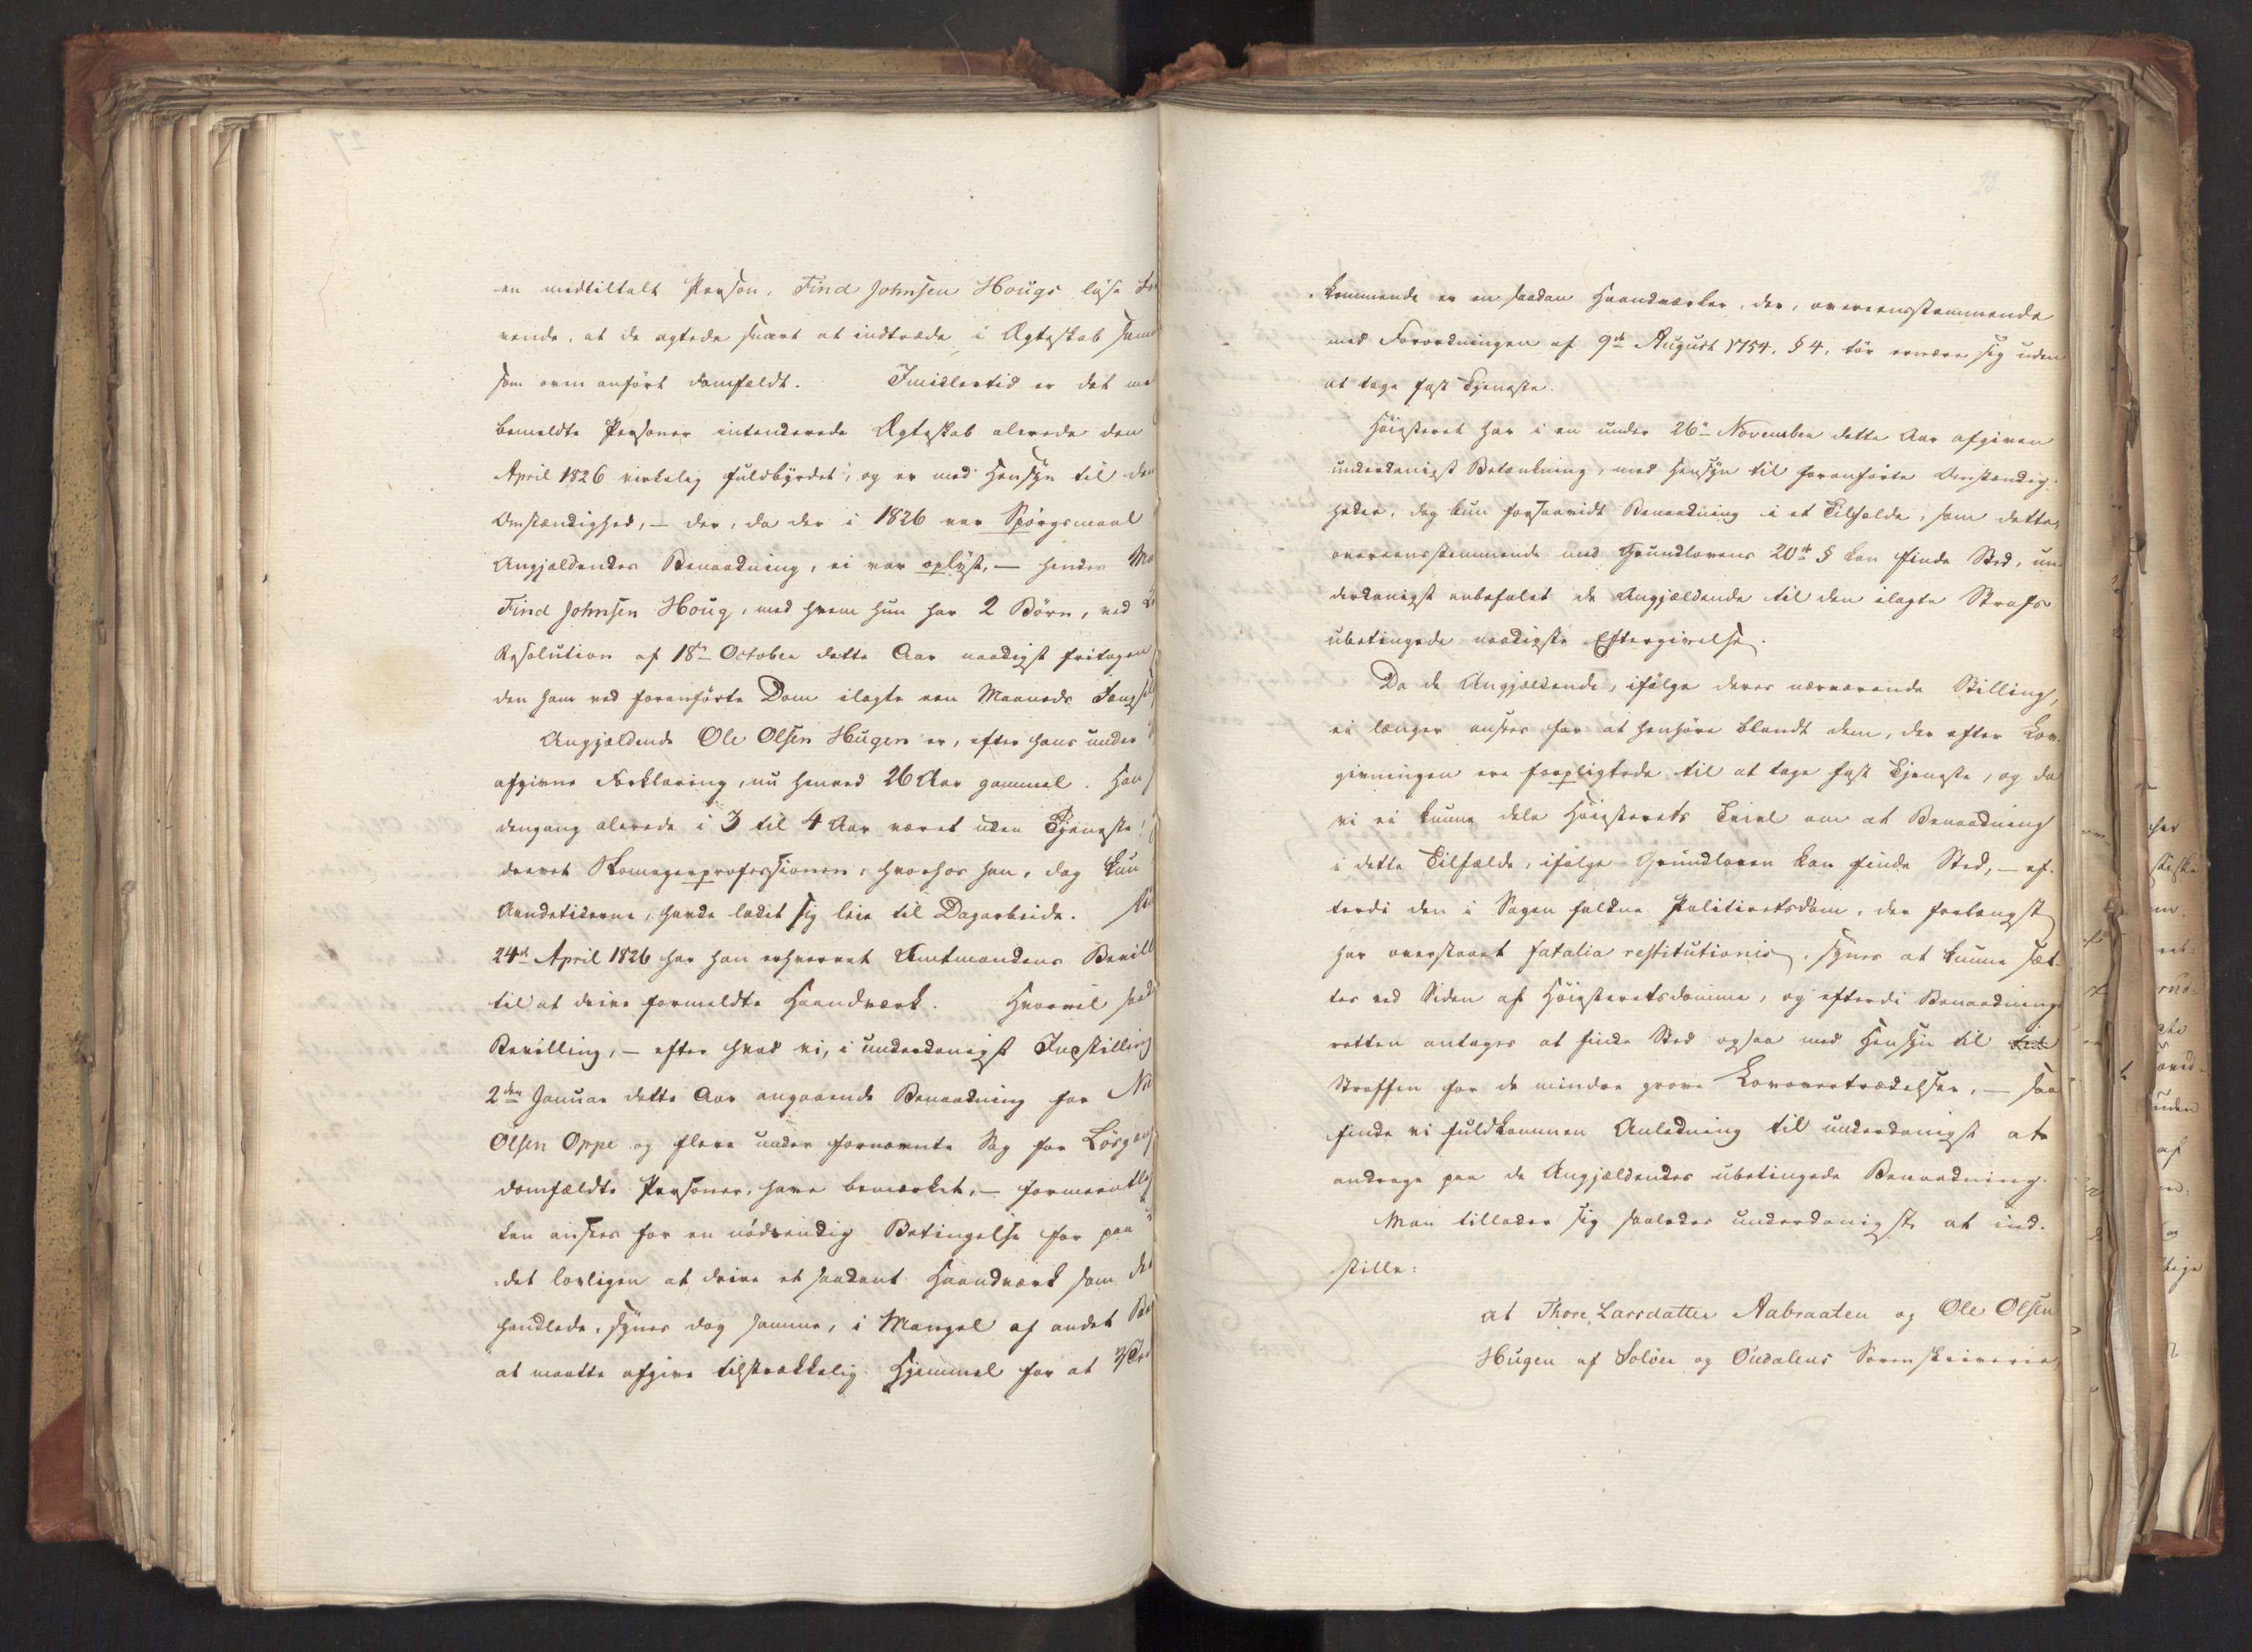 27
en medtiltalt Person, Find Johnsen Hougs lyse
rende, at de agtede snart at indtræde i Ægteskab
som oven anført domfældt. Imidlertid er det
bemeldte Personer intenderede Ægteskab alerede den
April 1826 virkelig fuldbyrdet; og er med Hensyn til den
Omstændighed, – der, da der i 1826 var Spørgsmaal
Angjældendes Benaadning, ei var oplyst, – hendes
Find Johnsen Houg, med hvem hun har 2 Børn, ved
Resolution af 18de October dette Aar naadigst fritagen
den ham ved foranførte Dom ilagte een Maaneds
Angjældende Ole Olsen Hugen er, efter hans under
afgivne Forklaring, nu henved 26 Aar gammel. Han
dengang alerede i 3 til 4 Aar været uden Tjeneste!
drevet Skomagerprofessionen, hvorhos han, dog kun
Aandetiderne, havde ladet sig leie til Dagarbeide.
24de April 1826 har han erhvervet Amtmandens
til at drive formeldte Haandværk. Hvorvel
Bevilling, – efter hvad vi, i underdanigst Indstilling
2den Januar dette Aar angaaende Benaadning for
Olsen Oppe og flere under fornævnte Sag for
domfældte Personer, have bemærket, – formeentlig
kan ansees for en nødvendig Betingelse for paa
det lovligen at drive et saadant Haandværk som
handlede, synes dog samme, i Mangel af andet
at maatte afgive tilstrækkelig Hjemmel for at
28.
kommende er en saadan Haandværker, der, overeensstemmende
med Forordningen af 9de August 1754, § 4, tør ernære sig uden
at tage fast Tjeneste.
Høiesteret har i en under 26de November dette Aar afgiven
underdanigst Betænkning, med Hensyn til foranførte Omstændig-
heder, dog kun forsaavidt Benaadning i et Tilfælde, som dette,
overeensstemmende med Grundlovens 20de § kan finde Sted, un-
derdanigst anbefalet de Angjældende til den ilagte Strafs
ubetingede naadigste Eftergivelse.
Da de Angjældende, ifølge deres nærværende Stilling,
ei længer ansees for at henhøre blandt dem, der efter Lov-
givningen ere forpligtede til at tage fast Tjeneste, og da
vi ei kunne dele Høiesterets Tvivl om at Benaadning
i dette Tilfælde, ifølge Grundloven kan finde Sted, – ef-
terdi den i Sagen faldne Politiretsdom, der forlængst
har overstaaet fatalia restitutionis, synes at kunne sæt-
tes ved Siden af Høiesteretsdomme, og efterdi Benaadnings-
retten antages at finde Sted ogsaa med Hensyn til
Straffen for de mindre grove Lovovertrædelser, – saa
finde vi fuldkommen Anledning til underdanigst at
andrage paa de Angjældendes ubetingede Benaadning.
Man tillader sig saaledes underdanigst at ind-
stille:
at Thore Larsdatter Aabraaten og Ole Olsen
Hugen af Soløer og Oudalens Sorenskriverie,